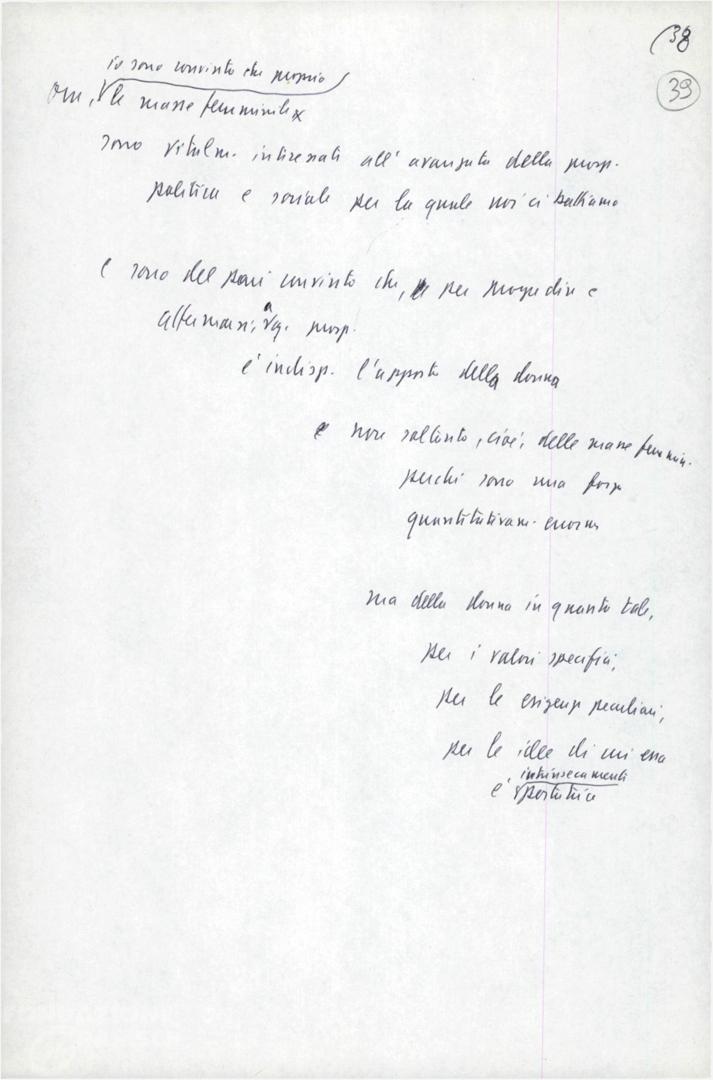 (38
39
io sono convinto che proprio
Ora, le masse femminili
sono vitalm. interessati all'avanzata della prosp.
politica e sociale per la quale noi ci battiamo
e sono del pari convinto che, per progredire e
affermarsi, prosp.
è indisp. l'apporto della donna
e non soltanto, cioè, delle masse femmin.
perché sono una forza
quantitativam. enorme
ma della donna in quanto tale,
per i valori specifici,
per le esigenze peculiari,
per le idee di cui essa
intrinsecamente
è portatrice